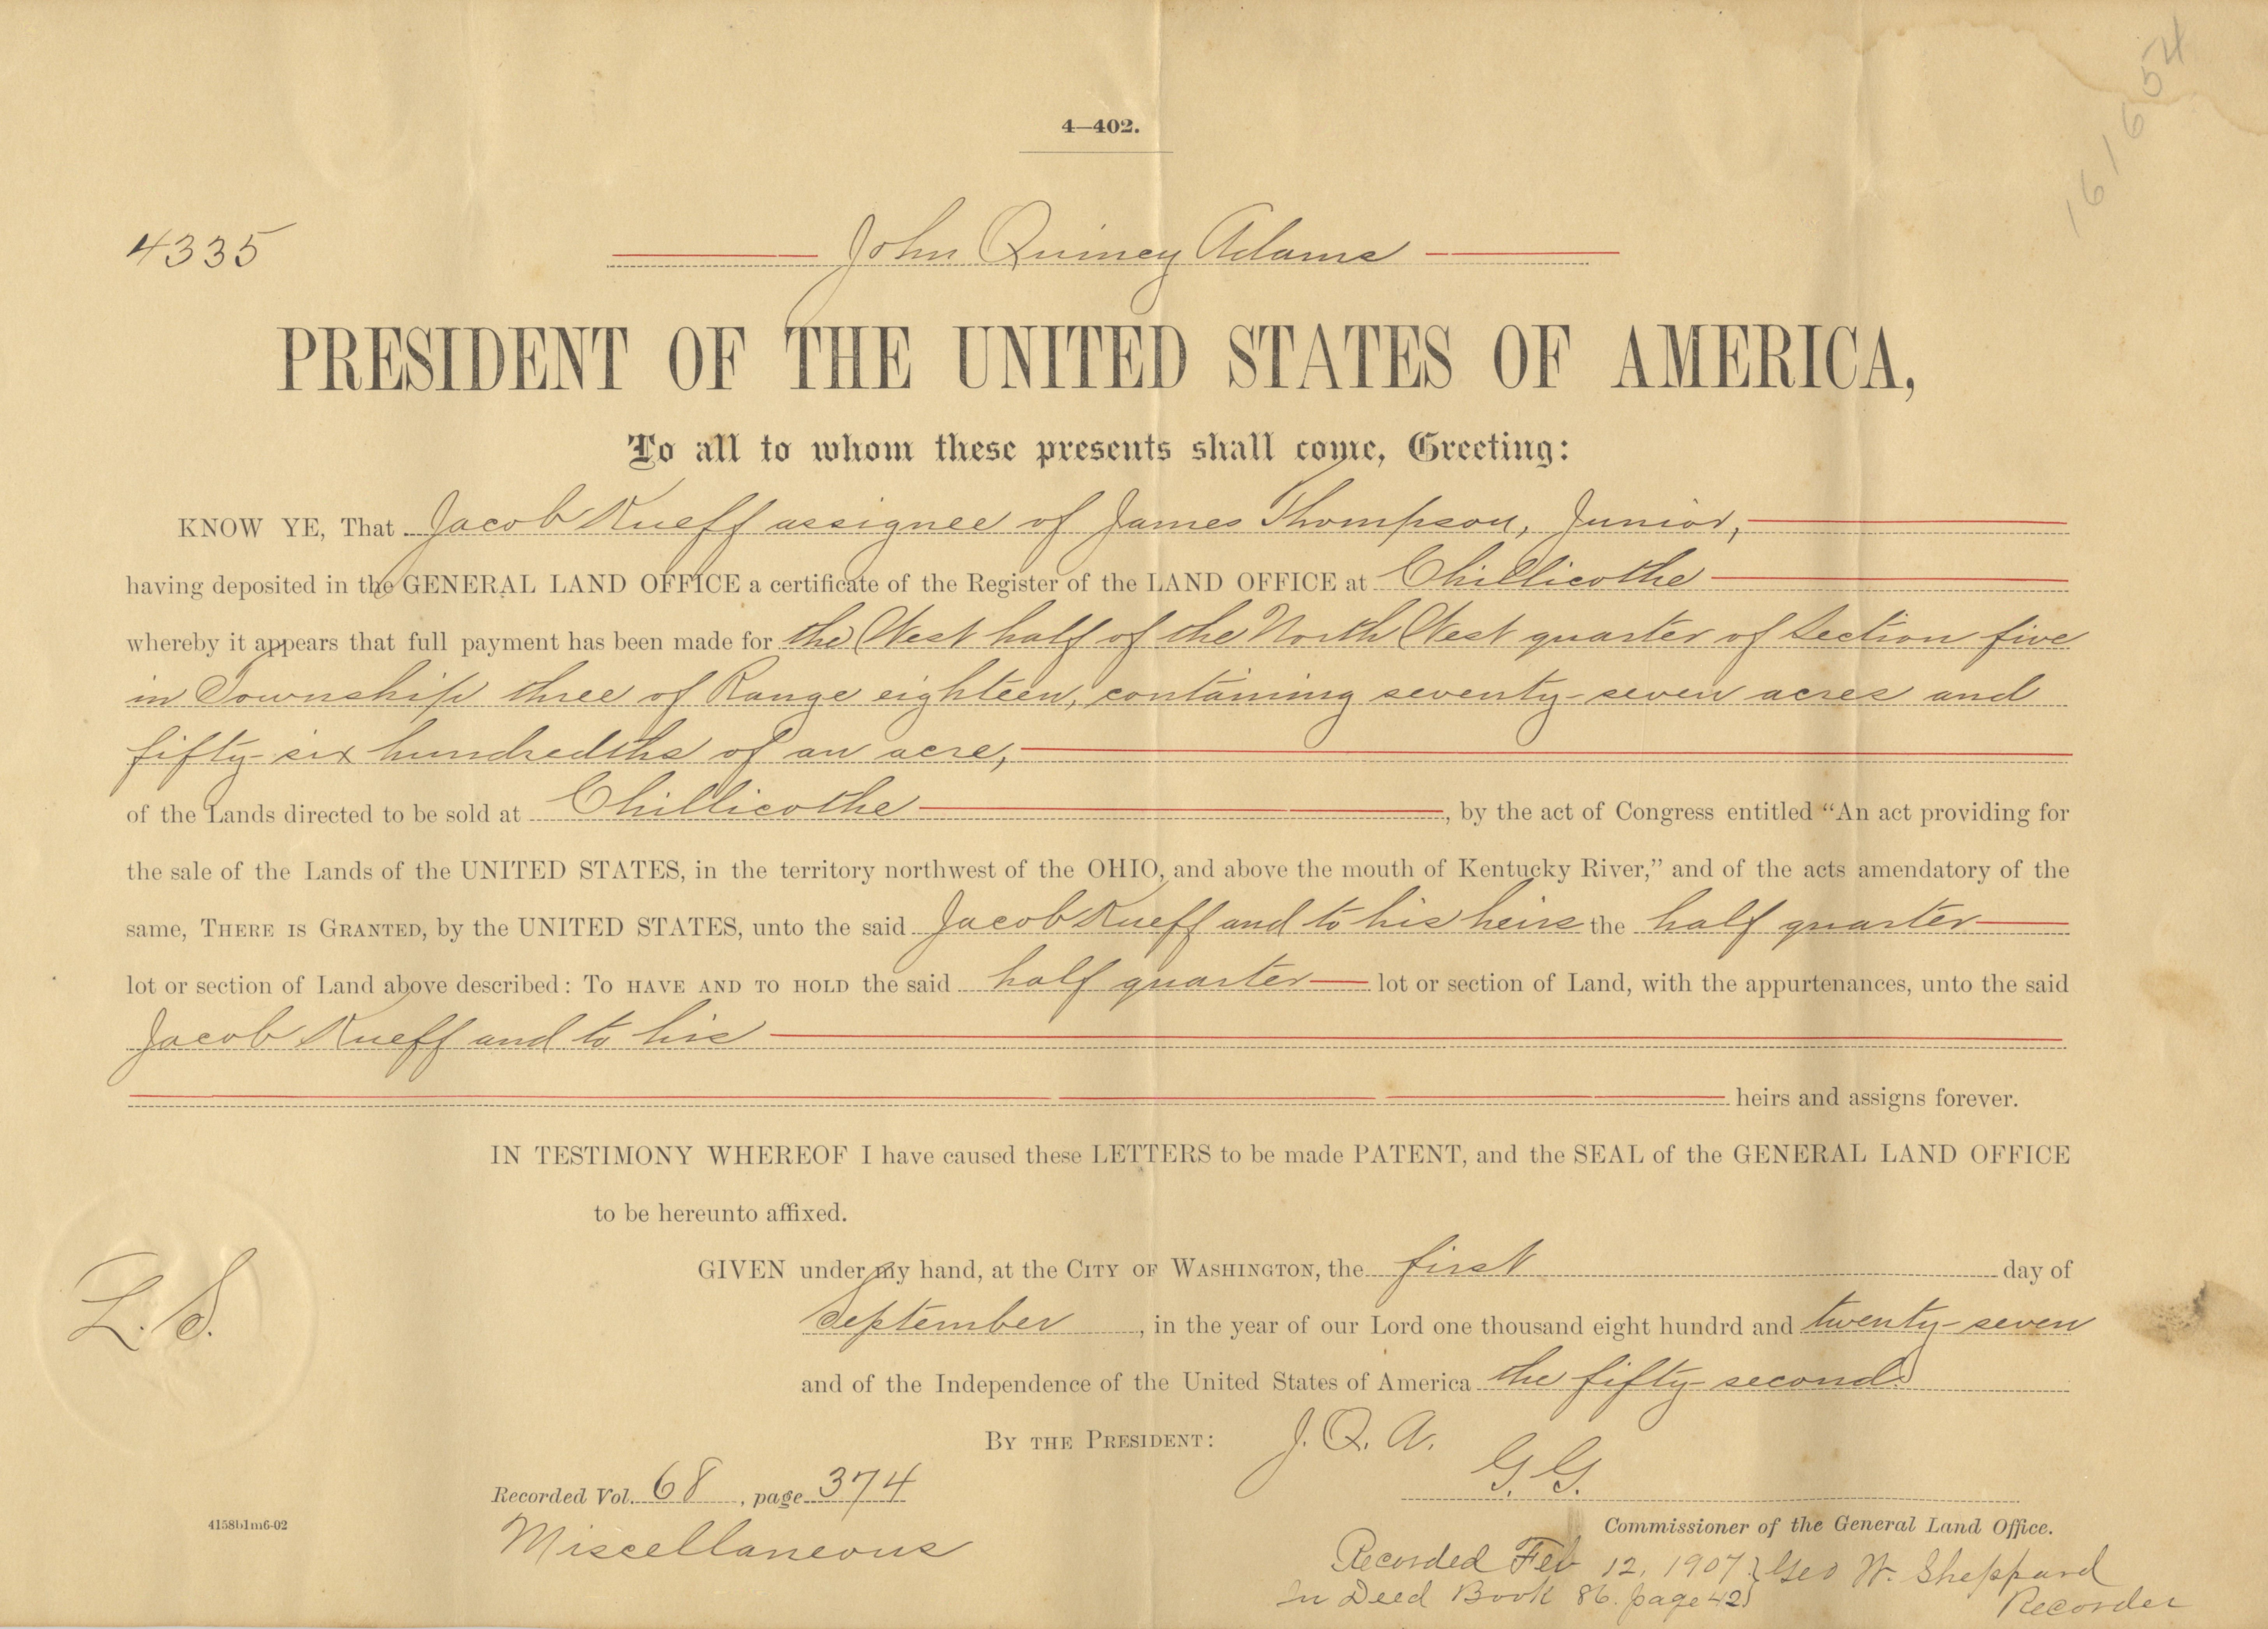 161654
4—402.
4335 John Quincy Adams
PRESIDENT OF THE UNITED STATES OF AMERICA,
To all to whom these presents shall come, Greeting:
KNOW YE, That Jacob Kueff assignee of James Thompson, Junior,
having deposited in the GENERAL LAND OFFICE a certificate of the Register of the LAND OFFICE at Chillicothe
whereby it appears that full payment has been made for the West half of the North West quarter of Section five
in Township three of Range eighteen, containing seventy-seven acres and
fifty-six hundredths of an acre,
of the Lands directed to be sold at Chillicothe, by the act of Congress entitled “An act providing for
the sale of the Lands of the UNITED STATES, in the territory northwest of the OHIO, and above the mouth of Kentucky River,” and of the acts amendatory of the
same, THERE IS GRANTED, by the UNITED STATES, unto the said Jacob Kueff and to his heirs the half quarter
lot or section of Land above described: TO HAVE AND TO HOLD the said half quarter lot or section of Land, with the appurtenances, unto the said
Jacob Kueff and to his
heirs and assigns forever.
IN TESTIMONY WHEREOF I have caused these LETTERS to be made PATENT, and the SEAL of the GENERAL LAND OFFICE
to be hereunto affixed.
GIVEN under my hand, at the CITY OF WASHINGTON, the first day of
L. S. September, in the year of our Lord one thousand eight hundrd and twenty-seven
and of the Independence of the United States of America the fifty-second.
BY THE PRESIDENT: J. Q. A.
G. G.
Recorded Vol. 68, page 374
4158b1m6-02 Commissioner of the General Land Office.
Miscellaneous
Recorded Feb 12, 1907 } Geo W. Sheppard
In Deed Book 86. page 42 } Recorder